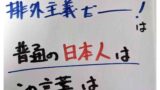 排外主義だー!は
普通の日本人は
この言葉は